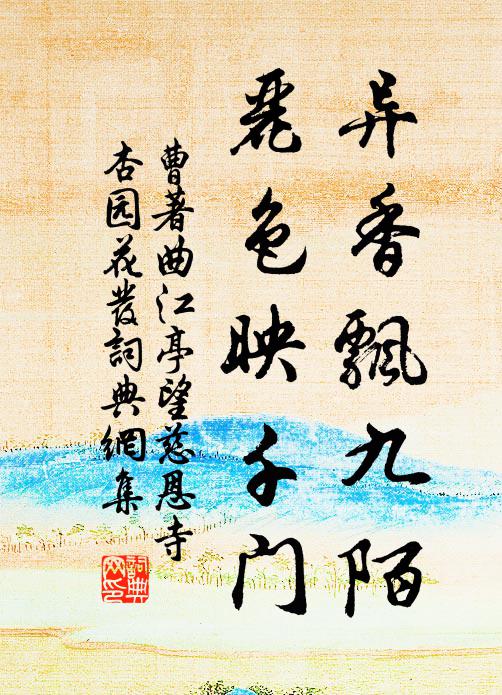 异香飘九陌
麗色映千门
曹著曲江亭望慈恩寺
杏园花發詞典網集
詞典网印